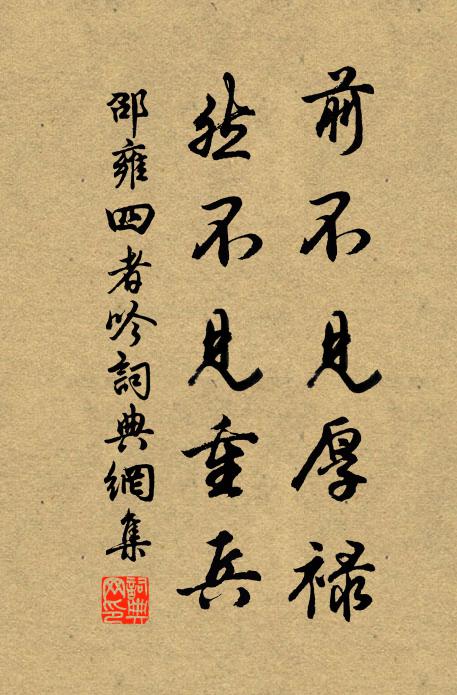 前不見厚祿
然不見重兵
邵雍四者吟詞典網集
詞典网印